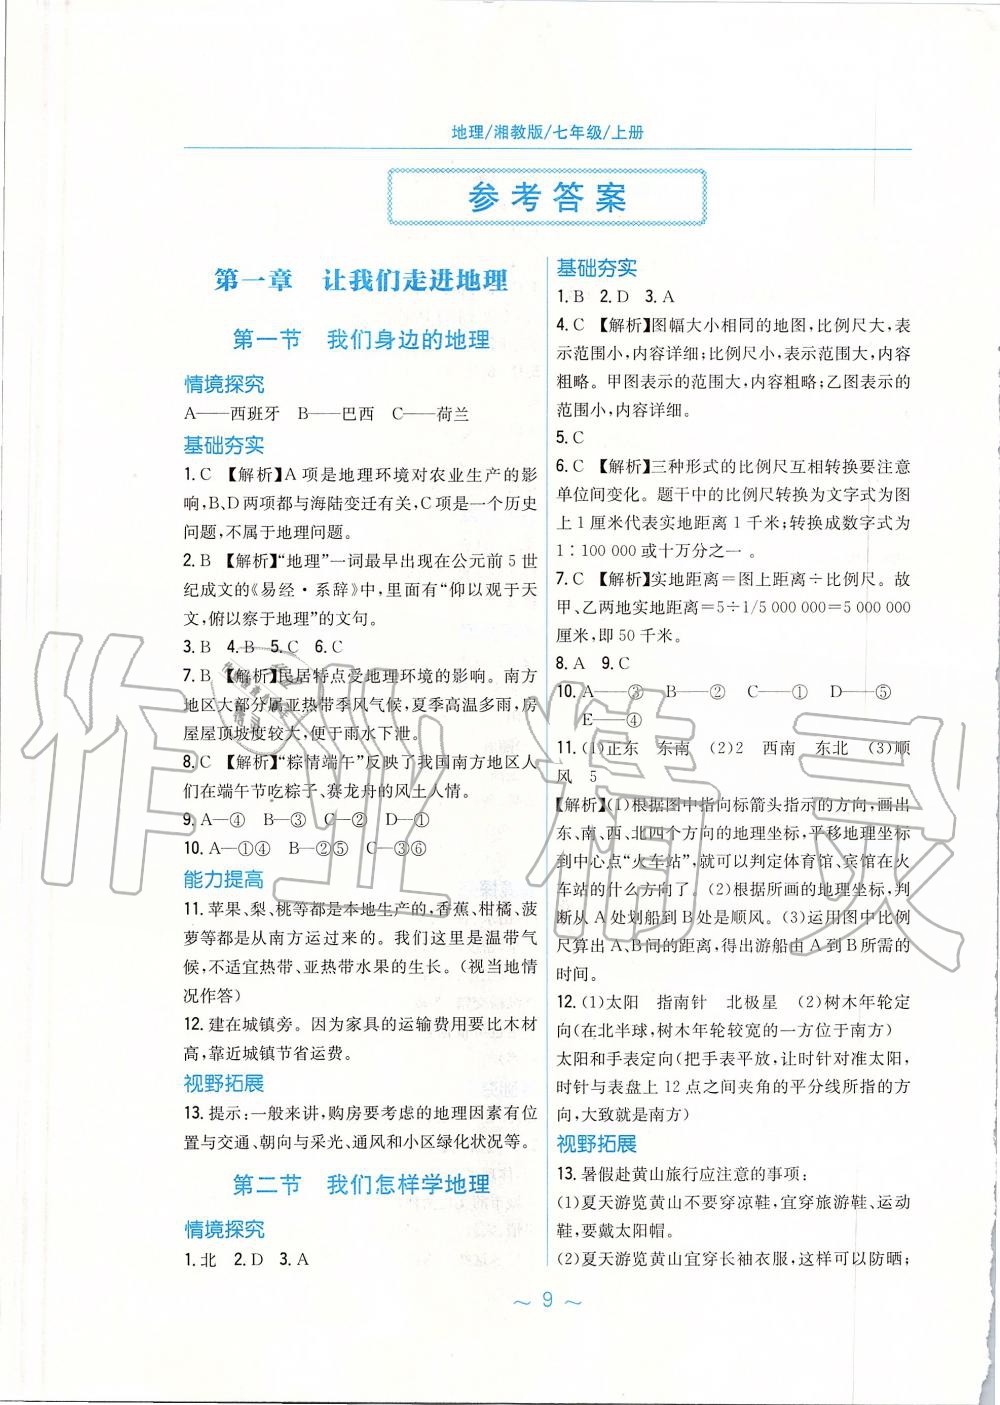 地理/湘教版/七年级/上册
参考答案
第一章 让我们走进地理
第一节 我们身边的地理
情境探究
A——西班牙 B——巴西 C——荷兰
基础夯实
1. C 【解析】A 项是地理环境对农业生产的影
响,B、D 两项都与海陆变迁有关,C 项是一个历史
问题,不属于地理问题。
2. B 【解析】“地理”一词最早出现在公元前 5 世
纪成文的《易经·系辞》中,里面有“仰以观于天
文,俯以察于地理”的文句。
3. B 4. B 5. C 6. C
7. B 【解析】民居特点受地理环境的影响。南方
地区大部分属亚热带季风气候,夏季高温多雨,房
屋屋顶坡度较大,便于雨水下泄。
8. C 【解析】“粽情端午”反映了我国南方地区人
们在端午节吃粽子、赛龙舟的风土人情。
9. A—④ B—③ C—② D—①
10. A—①④ B—②⑤ C—③⑥
能力提高
11. 苹果、梨、桃等都是本地生产的,香蕉、柑橘、菠
萝等都是从南方运过来的。我们这里是温带气
候,不适宜热带、亚热带水果的生长。(视当地情
况作答)
12. 建在城镇旁。因为家具的运输费用要比木材
高,靠近城镇节省运费。
视野拓展
13. 提示:一般来讲,购房要考虑的地理因素有位
置与交通、朝向与采光、通风和小区绿化状况等。
第二节 我们怎样学地理
情境探究
1. 北 2. D 3. A
基础夯实
1. B 2. D 3. A
4. C 【解析】图幅大小相同的地图,比例尺大,表
示范围小,内容详细;比例尺小,表示范围大,内容
粗略。甲图表示的范围大,内容粗略;乙图表示的
范围小,内容详细。
5. C
6. C 【解析】三种形式的比例尺互相转换要注意
单位间变化。题干中的比例尺转换为文字式为图
上 1 厘米代表实地距离 1 千米;转换成数字式为
1∶100 000 或十万分之一 。
7. C 【解析】实地距离=图上距离÷比例尺。故
甲、乙两地实地距离=5÷1/5 000 000=5 000 000
厘米,即 50 千米。
8. A 9. C
10. A——③ B——② C——① D——⑤
E——④
11. (1)正东 东南 (2)2 西南 东北 (3)顺
风 5
【解析】(1)根据图中指向标箭头指示的方向,画出
东、南、西、北四个方向的地理坐标,平移地理坐标
到中心点“火车站”,就可以判定体育馆、宾馆在火
车站的什么方向了。(2)根据所画的地理坐标,判
断从 A 处划船到 B 处是顺风。(3)运用图中比例
尺算出 A、B 间的距离,得出游船由 A 到 B 所需的
时间。
12. (1)太阳 指南针 北极星 (2)树木年轮定
向(在北半球,树木年轮较宽的一方位于南方)
太阳和手表定向(把手表平放,让时针对准太阳,
时针与表盘上 12 点之间夹角的平分线所指的方
向,大致就是南方)
视野拓展
13. 暑假赴黄山旅行应注意的事项:
(1)夏天游览黄山不要穿凉鞋,宜穿旅游鞋、运动
鞋,要戴太阳帽。
(2)夏天游览黄山宜穿长袖衣服,这样可以防晒;
～ 9 ～
作业精灵